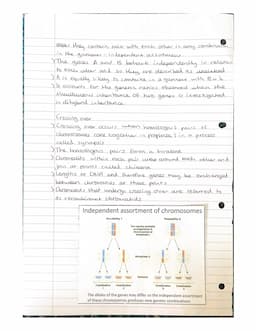 they contain pair with each other in any combination
in the gametes - independent assortment.
> The genes A and B behave independently in relation
to each other and so they are described as unlinked
> A is equally likely to combine in a gamete with B or b
> To account for the genetic ratios obtained when the
simultaneous inheritance of two genes is investigated
is dihybrid inheritance
Crossing over
> Crossing over occurs when homologous pairs of
chromosomes come together in prophase I in a process
called synapsis
> The homologous pairs form a bivalent
> Chromatids within each pair wrap around each other and
join at points called chiasma
> Lengths of DNA and therefore genes may be exchanged
between chromatids at these points
> Chromatids that undergo crossing over are referred to
as recombinant chromatids
Independent assortment of chromosomes
Possibility 1
Possibility 2
The alleles of the genes may differ so the independent assortment
of these chromosomes produces new genetic combinations